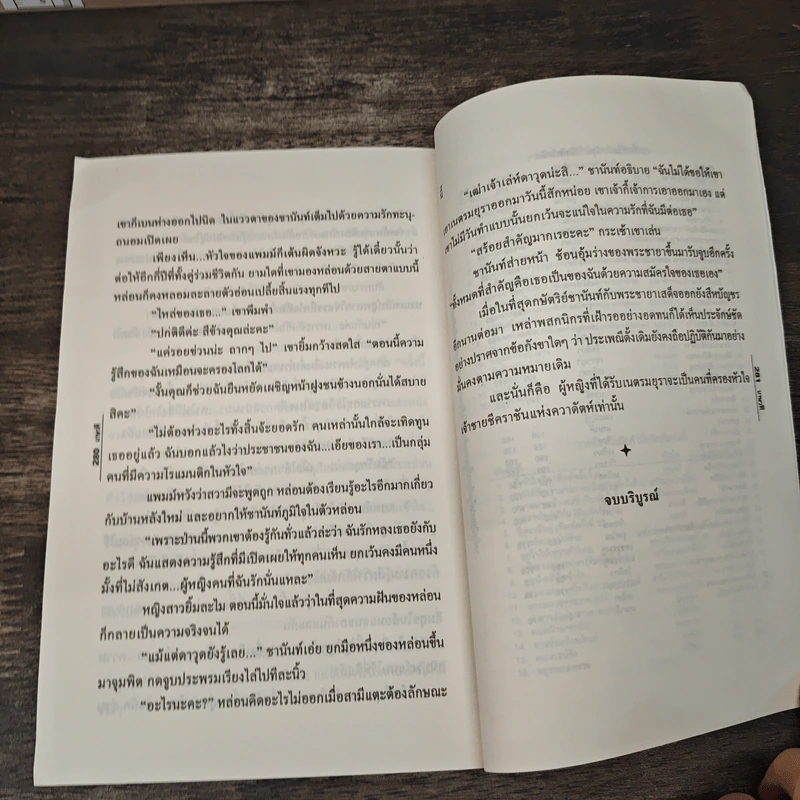 เขาก็เบนห่างออกไปนิด ในแววตาของชานันท์เต็มไปด้วยความรักทะนุ-
ถนอมเปิดเผย
เพียงเห็น...หัวใจของแพมม์ก็เต้นผิดจังหวะ รู้ได้เดี๋ยวนั้นว่า
ต่อให้อีกกี่ปีที่ทั้งคู่ร่วมชีวิตกัน ยามใดที่เขามองหล่อนด้วยสายตาแบบนี้
หล่อนก็คงหลอมละลายตัวอ่อนเปลี้ยสิ้นแรงทุกทีไป
“ไหล่ของเธอ...” เขาพึมพำ
“ปกติดีค่ะ สีข้างคุณล่ะคะ”
“แค่รอยช่วนน่ะ ถากๆ ไป” เขายิ้มกว้างสดใส “ตอนนี้ความ
รู้สึกของฉันเหมือนจะครองโลกได้”
“งั้นคุณก็ช่วยฉันยืนหยัดเผชิญหน้าฝูงชนข้างนอกนั่นได้สบาย
สิคะ”
“ไม่ต้องห่วงอะไรทั้งสิ้นจ้ะยอดรัก คนเหล่านั้นใกล้จะเทิดทูน
เธออยู่แล้ว ฉันบอกแล้วไงว่าประชาชนของฉัน...เอ๊ยของเรา...เป็นกลุ่ม
คนที่มีความโรแมนติกในหัวใจ”
แพมม์หวังว่าสวามีจะพูดถูก หล่อนต้องเรียนรู้อะไรอีกมากเกี่ยว
กับบ้านหลังใหม่ และอยากให้ชานันท์ภูมิใจในตัวหล่อน
“เพราะป่านนี้พวกเขาต้องรู้กันทั่วแล้วล่ะว่า ฉันรักหลงเธอยังกับ
อะไรดี ฉันแสดงความรู้สึกที่มีเปิดเผยให้ทุกคนเห็น ยกเว้นคงมีคนหนึ่ง
มั้งที่ไม่สังเกต...ผู้หญิงคนที่ฉันรักนั่นแหละ”
หญิงสาวยิ้มละไม ตอนนี้มั่นใจแล้วว่าในที่สุดความฝันของหล่อน
ก็กลายเป็นความจริงจนได้
“แม้แต่ดาวุดยังรู้เลย...” ชานันท์เอ่ย ยกมือหนึ่งของหล่อนขึ้น
มาจุมพิต กดจูบประพรมเรียงไล่ไปทีละนิ้ว
“อะไรนะคะ?” หล่อนคิดอะไรไม่ออกเมื่อสามีแตะต้องลักษณะ
280
นี้
“เฒ่าเจ้าเล่ห์ดาวุดน่ะสิ...” ชานันท์อธิบาย “ฉันไม่ได้ขอให้เขา
เอาเนตรมยุราออกมาวันนี้สักหน่อย เขาเจ้ากี้เจ้าการเอาออกมาเอง แต่
เขาไม่มีวันทำแบบนั้นยกเว้นจะแน่ใจในความรักที่ฉันมีต่อเธอ”
“สร้อยสำคัญมากเรอะคะ” กระเซ้าเขาเล่น
ชานันท์ส่ายหน้า ช้อนอุ้มร่างของพระชายาขึ้นมารับจูบอีกครั้ง
“ทั้งหมดที่สำคัญคือเธอเป็นของฉันด้วยความสมัครใจของเธอเอง”
เมื่อในที่สุดกษัตริย์ชานันท์กับพระชายาเสด็จออกยังสีหบัญชร
อีกนานต่อมา เหล่าพสกนิกรที่เฝ้ารออย่างอดทนก็ได้เห็นประจักษ์ชัด
อย่างปราศจากข้อกังขาใดๆ ว่า ประเพณีดั้งเดิมยังคงถือปฏิบัติกันมาอย่าง
มั่นคงตามความหมายเดิม
และนั่นก็คือ ผู้หญิงที่ได้รับเนตรมยุราจะเป็นคนที่ครองหัวใจ
เจ้าชายชีคราชันแห่งควาดัตห์เท่านั้น
จบบริบูรณ์
281